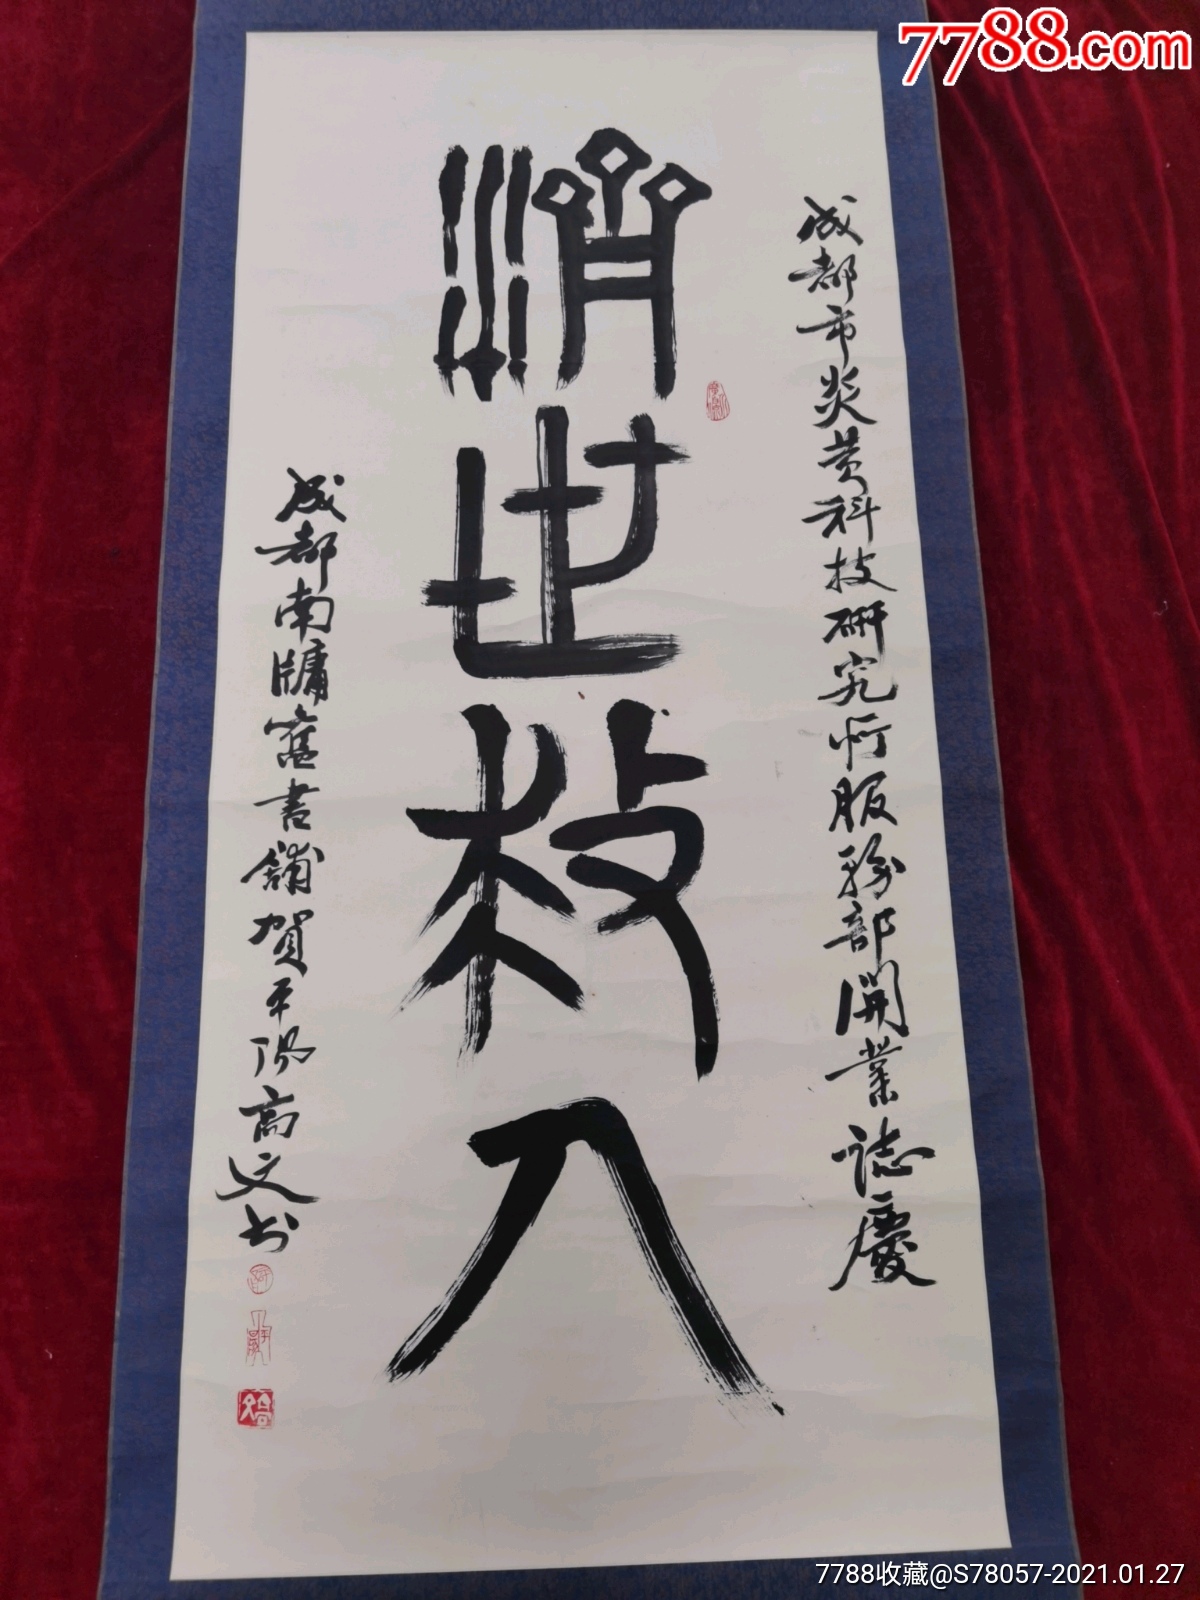 7788.com
成都市炎黄科技研究所服務部開業誌慶
濟世救人
成都南牖舊書鋪賀平陽高文书
7788收藏@S78057-2021.01.27